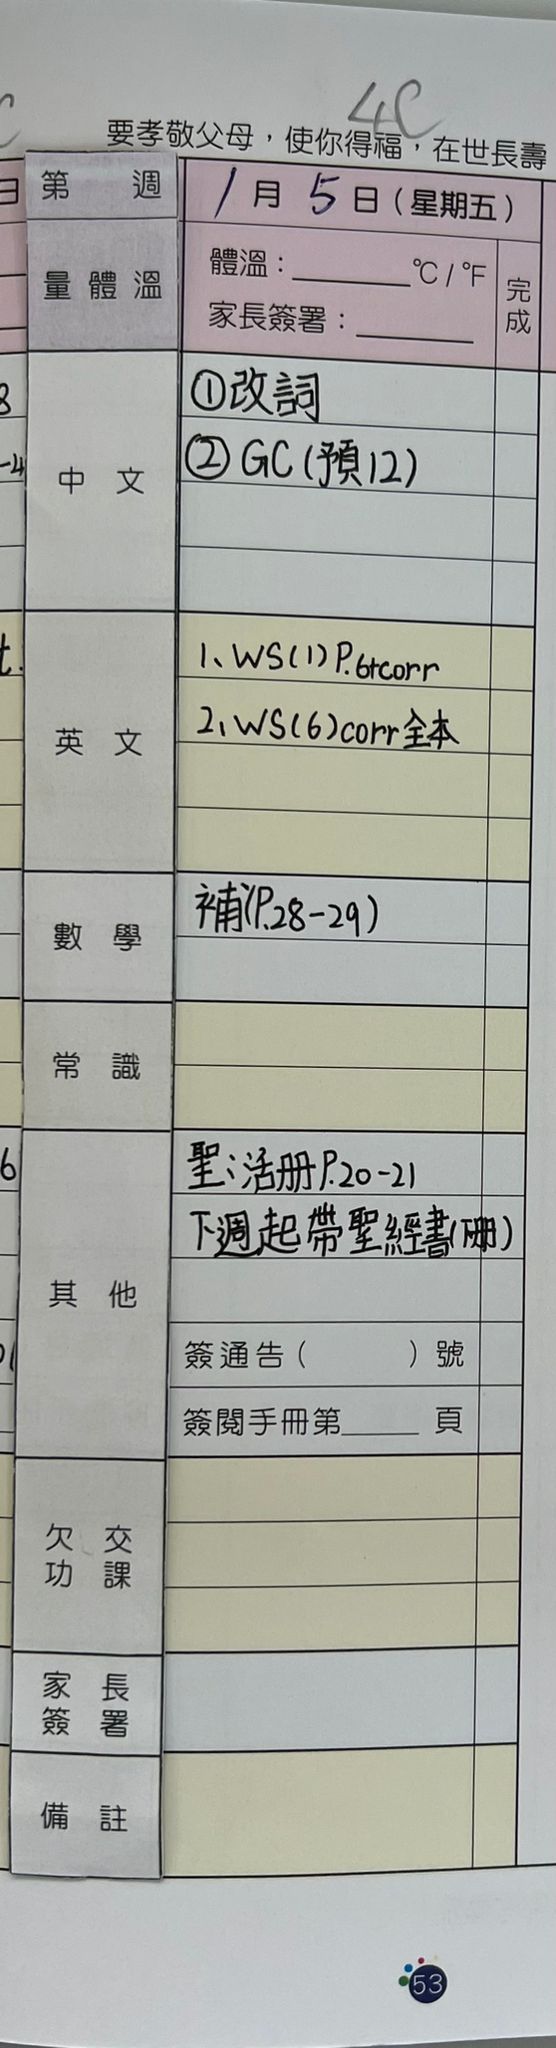 4C
要孝敬父母，使你得福，在世長壽
第 週
1月5日(星期五)
量體溫
體溫：______°C/°F
家長簽署：______
完成
中文
①改詞
②GC(預12)
英文
1、WS(1)P.6+corr
2、WS(6)corr全本
數學
補(P.28-29)
常識
其他
聖：活册P.20-21
下週起帶聖經書(册)
簽通告( )號
簽閱手冊第____頁
欠交功課
家長簽署
備註
53